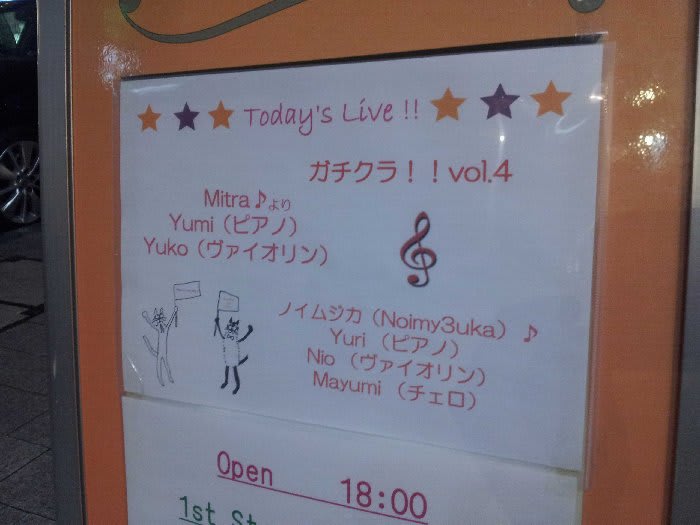 Today's Live !!
ガチクラ！！vol.4
Mitra♪より
Yumi（ピアノ）
Yuko（ヴァイオリン）
ノイムジカ（Noimy3uka）♪
Yuri（ピアノ）
Nio（ヴァイオリン）
Mayumi（チェロ）
Open 18:00
1st St